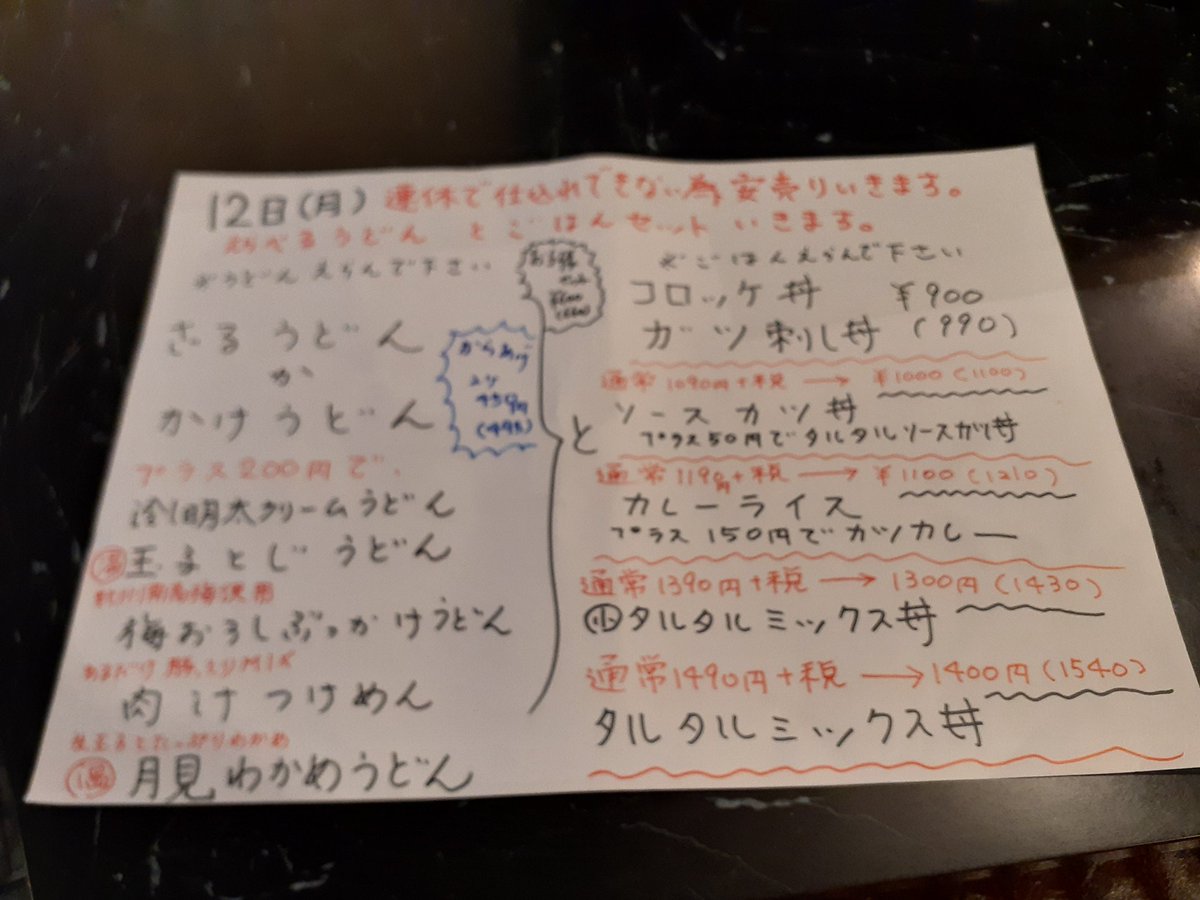 12日(月) 連休で仕込れできない為安売りいきます。
えらべるうどん とごはんセット いきます。
※うどんえらんで下さい
ざるうどん
か
かけうどん
プラス200円で、
冷明太クリームうどん
温玉子とじうどん
梅おろしぶっかけうどん
肉汁つけめん
生玉子とたっぷりわかめ
温月見わかめうどん
からあげ
2ケ
450円
(495)
と
※ごはんえらんで下さい
コロッケ丼 ¥900
ガツ刺し丼 (990)
通常1090円+税 → ¥1000(1100)
ソースカツ丼
プラス50円でタルタルソースカツ丼
通常1190円+税 → ¥1100(1210)
カレーライス
プラス150円でカツカレー
通常1390円+税 → 1300円(1430)
小タルタルミックス丼
通常1490円+税 → 1400円(1540)
タルタルミックス丼